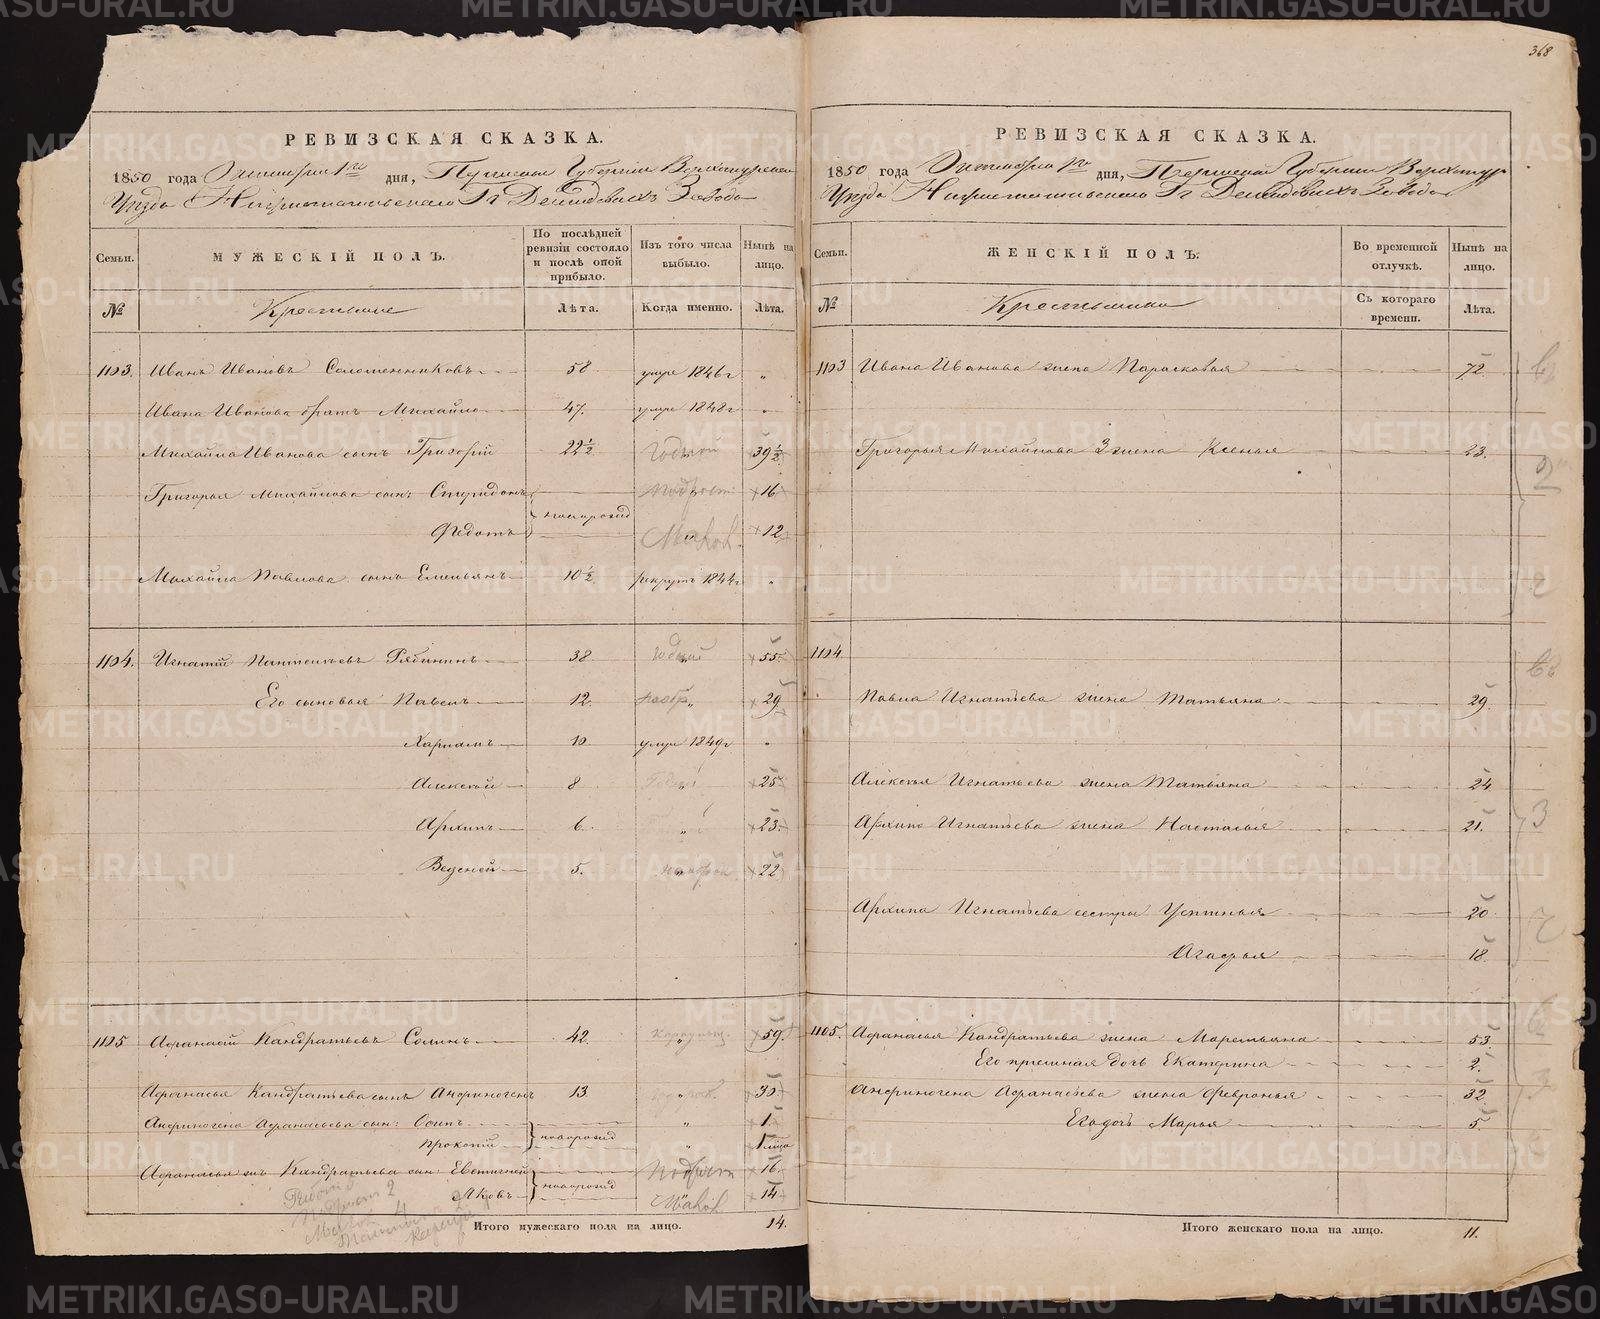 368
РЕВИЗСКАЯ СКАЗКА.
1850 года Октября 1го дня, Пермской Губернии Верхотурскаго
Уезда Нижнетагильскаго Гг Демидовыхъ Завода
Семьи. МУЖЕСКІЙ ПОЛЪ. По послѣдней ревизіи состояло и послѣ оной прибыло. Изъ того числа выбыло. Нынѣ на лицо.
№ Крестьяне Лѣта. Когда именно. Лѣта.
1103. Иванъ Ивановъ Соломенниковъ 58 умре 1846г "
Ивана Иванова братъ Михайло 47. умре 1848г "
Михайла Иванова сынъ Григорій 22½ Годной 39½
Григорья Михайлова сын: Спиридонъ новорожд Подрост: 16
Федотъ 12
Михайла Павлова сынъ Емельянъ 10½ рекрутъ 1844г "
1104. Игнатій Пантелѣевъ Рябининъ 38. Годной 55
Его сыновья Павелъ 12. 29
Харламъ 10 умре 1849г "
Алексей 8 25
Архипъ 6. " 23
Веденей 5. 22
1105 Афанасій Кандратьевъ Соминъ 42. " 59
Афанасья Кандратьева сынъ Анфиногенъ 13 " 30
Анфиногена Афанасьева сын: Осипъ новорожд " 1
Прокопій " 1
Афанасья жъ Кандратьева сын: Евстигней новорожд Подрост 16
Яковъ 14
Подрост 2
Итого мужескаго пола на лицо. 14.
РЕВИЗСКАЯ СКАЗКА.
1850 года Октября 1го дня, Пермской Губернии Верхотур
Уезда Нижнетагильскаго Гг Демидовыхъ Завода
Семьи. ЖЕНСКІЙ ПОЛЪ. Во временной отлучкѣ. Нынѣ на лицо.
№ Крестьянки Съ котораго времени. Лѣта.
1103 Ивана Иванова жена Парасковья 72
Григорья Михайлова 2 жена Ксенья 23.
1104
Павла Игнатьева жена Татьяна 29.
Алексея Игнатьева жена Татьяна 24
Архипа Игнатьева жена Настасья 21.
Архипа Игнатьева сестры Устинья 20
Агафья 18.
1105. Афанасья Кандратьева жена Маремьяна 53.
Его приемная дочь Екатерина 2.
Анфиногена Афанасьева жена Февронья 32
Его дочь Марья 5
Итого женскаго пола на лицо. 11.
METRIKI.GASO-URAL.RU